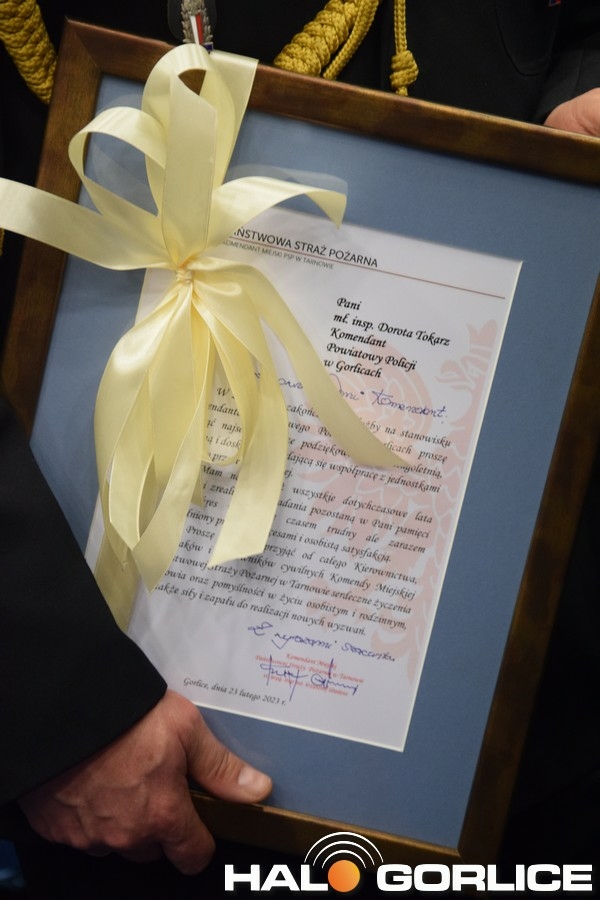 AŃSTWOWA STRAŻ POŻARNA
KOMENDANT MIEJSKI PSP W TARNOWIE
Pani
mł. insp. Dorota Tokarz
Komendant
Powiatowy Policji
w Gorlicach
Pani Komendant!
W zakończ by na stanowisku
endanta wego Po orlicach proszę
ąć najse podzięko
i dosk dającą się współpracę z jednostkami
prz ej.
Mam na wszystkie dotychczasowe lata
i zreali adania pozostaną w Pani pamięci
res czasem trudny ale zarazem
niony p cesami i osobistą satysfakcją.
Proszę przyjąć od całego Kierownictwa,
aków i ników cywilnych Komendy Miejskiej
stwowej Straży Pożarnej w Tarnowie serdeczne życzenia
owia oraz pomyślności w życiu osobistym i rodzinnym,
także siły i zapału do realizacji nowych wyzwań.
Z wyrazami szacunku
Komendant Miejski
Państwowej Straży Pożarnej w Tarnowie
Gorlice, dnia 23 lutego 2023 r.
HALO GORLICE